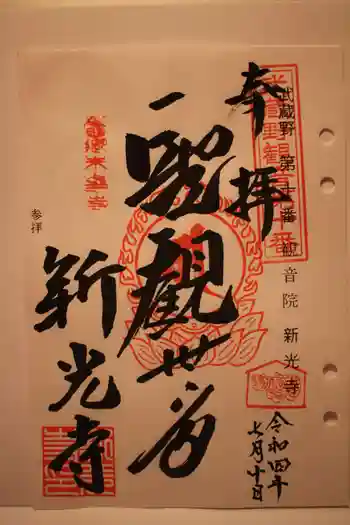 奉拝
武蔵野 第十番 観音院 新光寺
令和四年
七月十日
聖観世音
新光寺
参拝